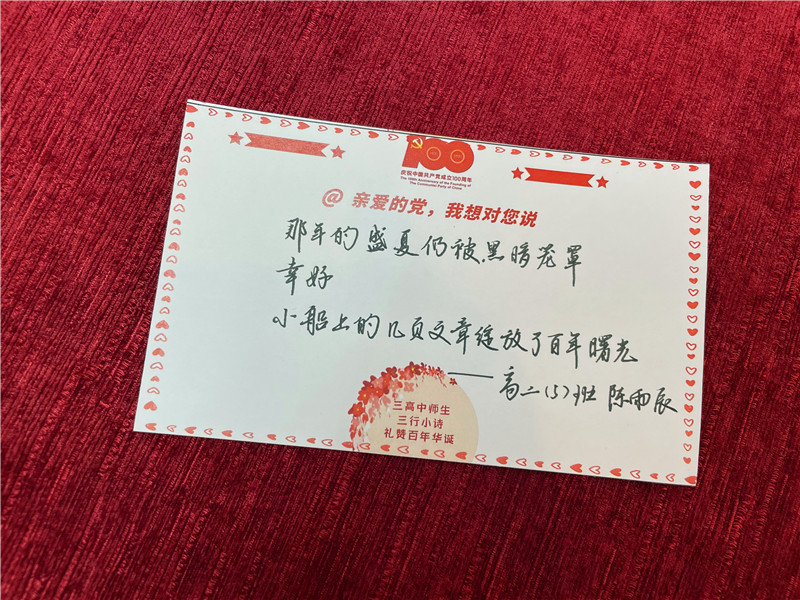 100
庆祝中国共产党成立100周年
The 100th Anniversary of the Founding of
The Communist Party of China
@ 亲爱的党，我想对您说
那年的盛夏仍被黑暗笼罩
幸好
小船上的几页文章绽放了百年曙光
——高二（5）班 陈雨辰
三高中师生
三行小诗
礼赞百年华诞